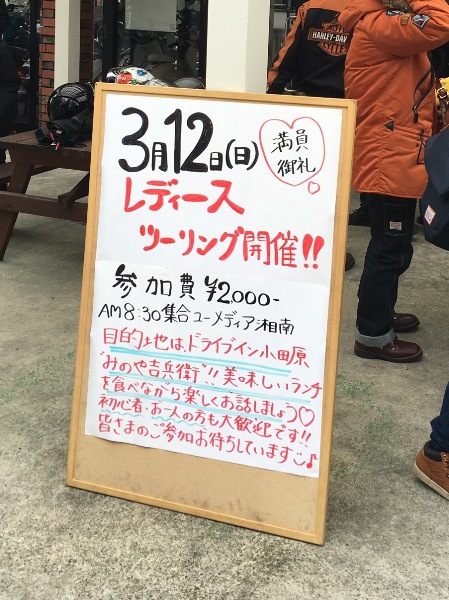 HARLEY-DAV
3月12日(日)
満員
御礼
レディース
ツーリング開催!!
参加費 ¥2,000-
AM8:30集合ユーメディア湘南
目的地は、ドライブイン小田原
"みのや吉兵衛"!!美味しいランチ
を食べながら楽しくお話ししましょう♡
初心者・お一人の方も大歓迎です!!
皆さまのご参加お待ちしています♪